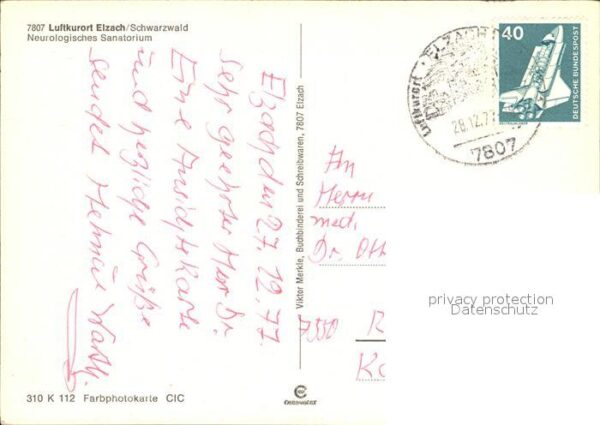 7807 Luftkurort Elzach/Schwarzwald
Neurologisches Sanatorium
Elzach den 27. 12. 77.
Sehr geehrter Herr Dr.
Eine Ansichtskarte
und herzliche Grüße
sendet Helmut
Viktor Merkle, Buchbinderei und Schreibwaren, 7807 Elzach
Luftkurort · ELZACH
28.12.77
7807
40
DEUTSCHE BUNDESPOST
An
Herrn
med.
Dr. Oth
7550 R
privacy protection
Datenschutz
310 K 112 Farbphotokarte CIC